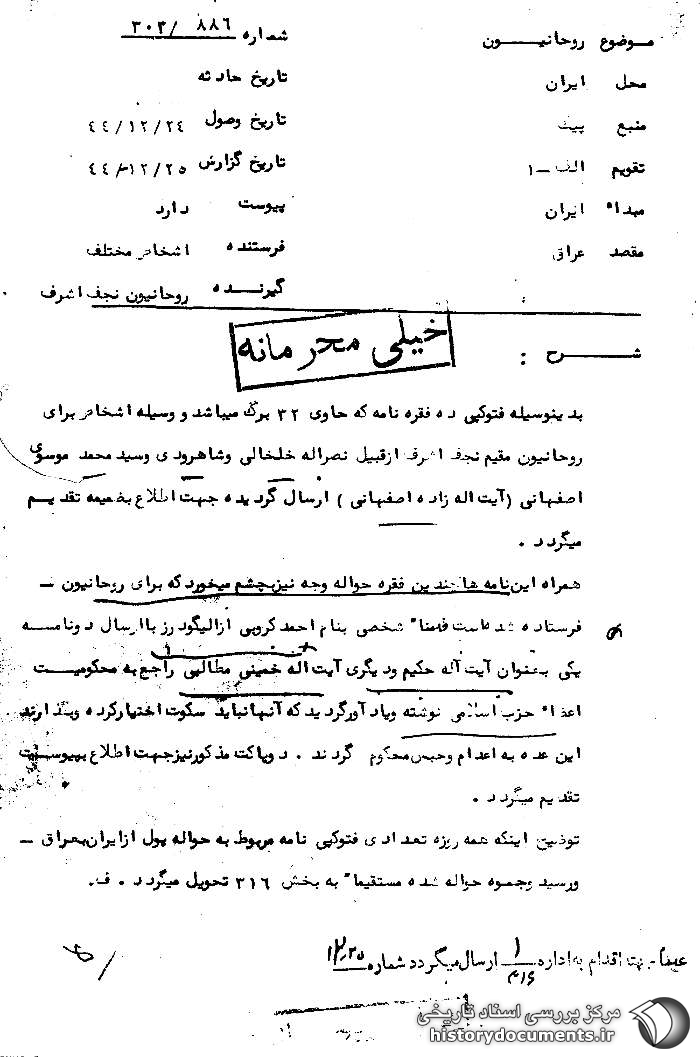 موضوع روحانیون
شماره ۸۸۶ / ۳۰۳
محل ایران
تاریخ حادثه
منبع پیک
تاریخ وصول ۴۴/۱۲/۲۴
تقویم الف – ۱
تاریخ گزارش ۴۴/۱۲/۲۵
مبداء ایران
پیوست دارد
مقصد عراق
فرستنده اشخاص مختلف
گیرنده روحانیون نجف اشرف
خیلی محرمانه
شرح :
بدینوسیله فتوکپی ده فقره نامه که حاوی ۳۲ برگ میباشد و وسیله اشخاص برای
روحانیون مقیم نجف اشرف ازقبیل نصراله خلخالی وشاهرودی وسید محمد موسوی
اصفهانی (آیت اله زاده اصفهانی ) ارسال گردیده جهت اطلاع بضمیمه تقدیم
میگردد .
همراه این نامه ها چندین فقره حواله وجه نیز بچشم میخورد که برای روحانیون –
فرستاده شده است ضمنا" شخصی بنام احمد کروبی ازالیگودرز با ارسال دونامه
یکی بعنوان آیت اله حکیم ودیگری آیت اله خمینی مطالبی راجع به محکومیت
اعضاء حزب اسلامی نوشته ویادآورگردیدکه آنها نباید سکوت اختیارکرده وبگذارند
این عده به اعدام وحبس محکوم گردند . دوپاکت مذکورنیزجهت اطلاع بپیوست
تقدیم میگردد .
توضیح اینکه همه روزه تعدادی فتوکپی نامه مربوط به حواله پول ازایران بعراق –
ورسید وجوه حواله شده مستقیما" به بخش ۳۱۶ تحویل میگردد . ف.
عیناً جهت اقدام به اداره ۱/۳۱۶ ارسال میگردد شماره
مرکز بررسی اسناد تاریخی
historydocuments.ir